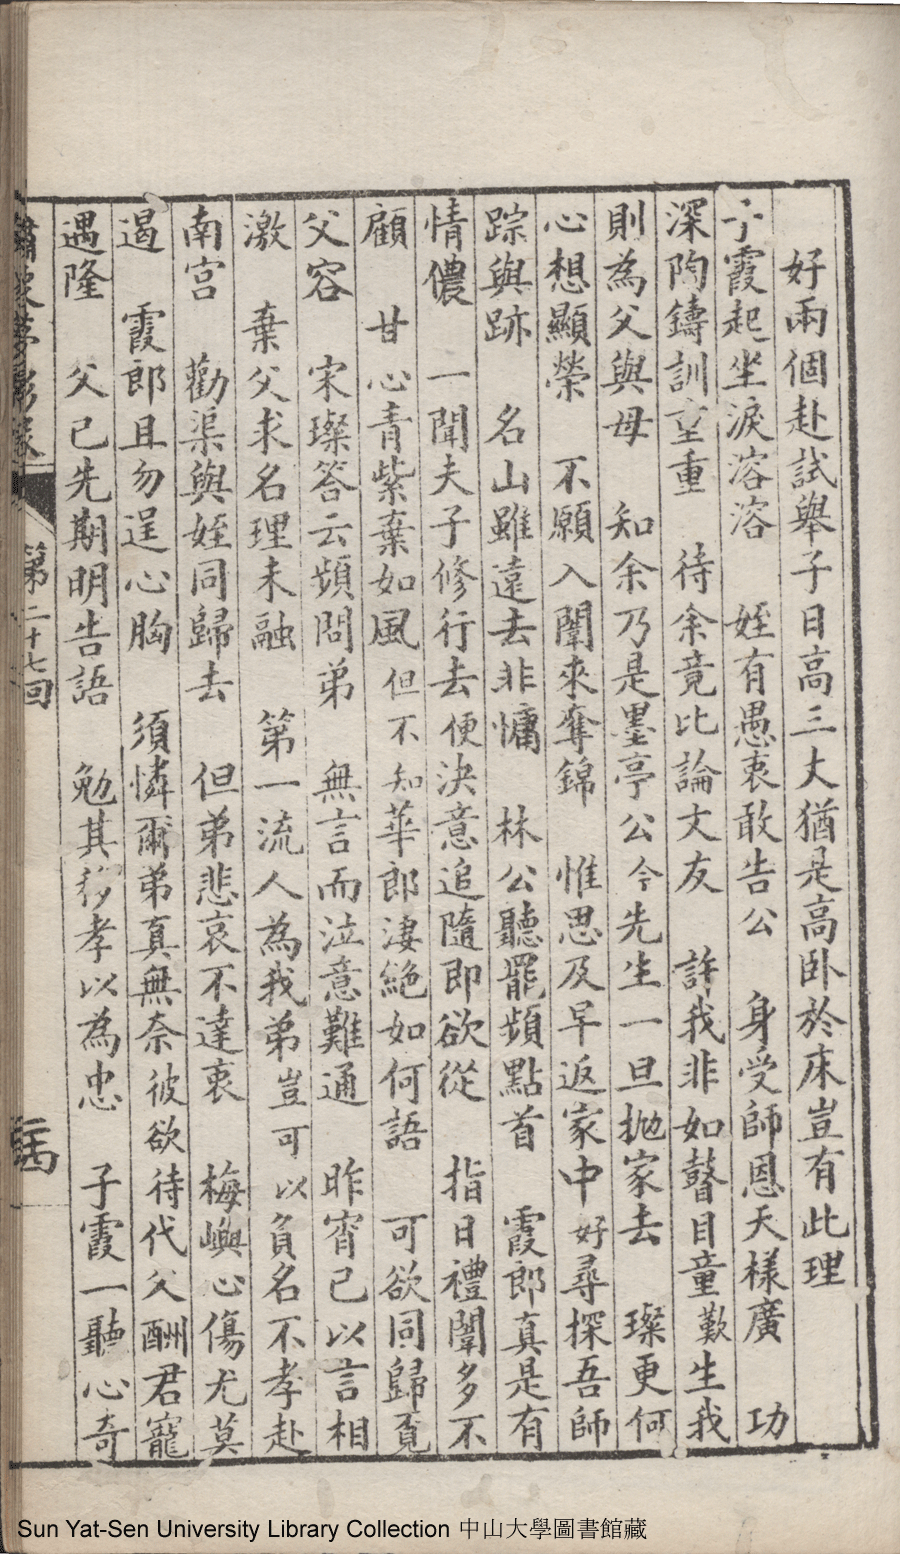 好兩個赴試舉子日高三丈猶是高卧於床豈有此理
子霞起坐淚溶溶　姪有愚衷敢告公　身受師恩天樣廣　功
深陶鑄訓重重　待余竟比論文友　許我非如瞽目童歎生我
則為父與母　知余乃是墨亭公今先生一旦抛家去　璨更何
心想顯榮　不願入闈來奪錦　惟思及早返家中好尋探吾師
踪與跡　名山雖遠去非慵　林公聽罷頻點首　霞郎真是有
情儂　一聞夫子修行去便決意追隨即欲從　指日禮闈多不
顧　甘心青紫棄如風但不知華郎淒絶如何語　可欲同歸覓
父容　宋璨答云頻問弟　無言而泣意難通　昨宵已以言相
激　棄父求名理未融　第一流人為我弟豈可以負名不孝赴
南宮　勸渠與姪同歸去　但弟悲哀不達衷　梅嶼心傷尤莫
遏　霞郎且勿逞心胸　須憐爾弟真無奈彼欲待代父酬君寵
遇隆　父已先期明告語　勉其移孝以為忠　子霞一聽心奇
夢影
第二十七回
Sun Yat-Sen University Library Collection 中山大學圖書館藏